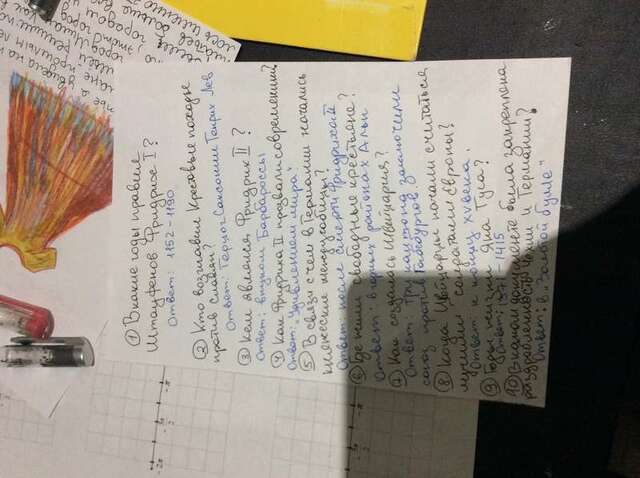 ① В какие годы правил
Штауфенов Фридрих I?
Ответ: 1152-1190
② Кто возглавил Крестовые походы
против славян?
Ответ: Герцог Саксонии Генрих Лев
③ Кем являлся Фридрих II?
Ответ: внуком Барбароссы
④ Как Фридриха II прозвали современники?
Ответ: "Удивлением мира"
⑤ В связи с чем в Германии начались
княжеские междоусобицы?
Ответ: после смерти Фридриха II
⑥ Где жили свободные крестьяне?
Ответ: в горных районах Альп
⑦ Как создалась Швейцария?
Ответ: Три кантона заключили
союз против Габсбургов
⑧ Когда Швейцарцы начали считаться
лучшими солдатами Европы?
Ответ: к концу XV века.
⑨ Годы жизни Яна Гуса?
Ответ: 1371-1415
⑩ В каком документе была закреплена
раздробленность Германии?
Ответ: в "Золотой булле"